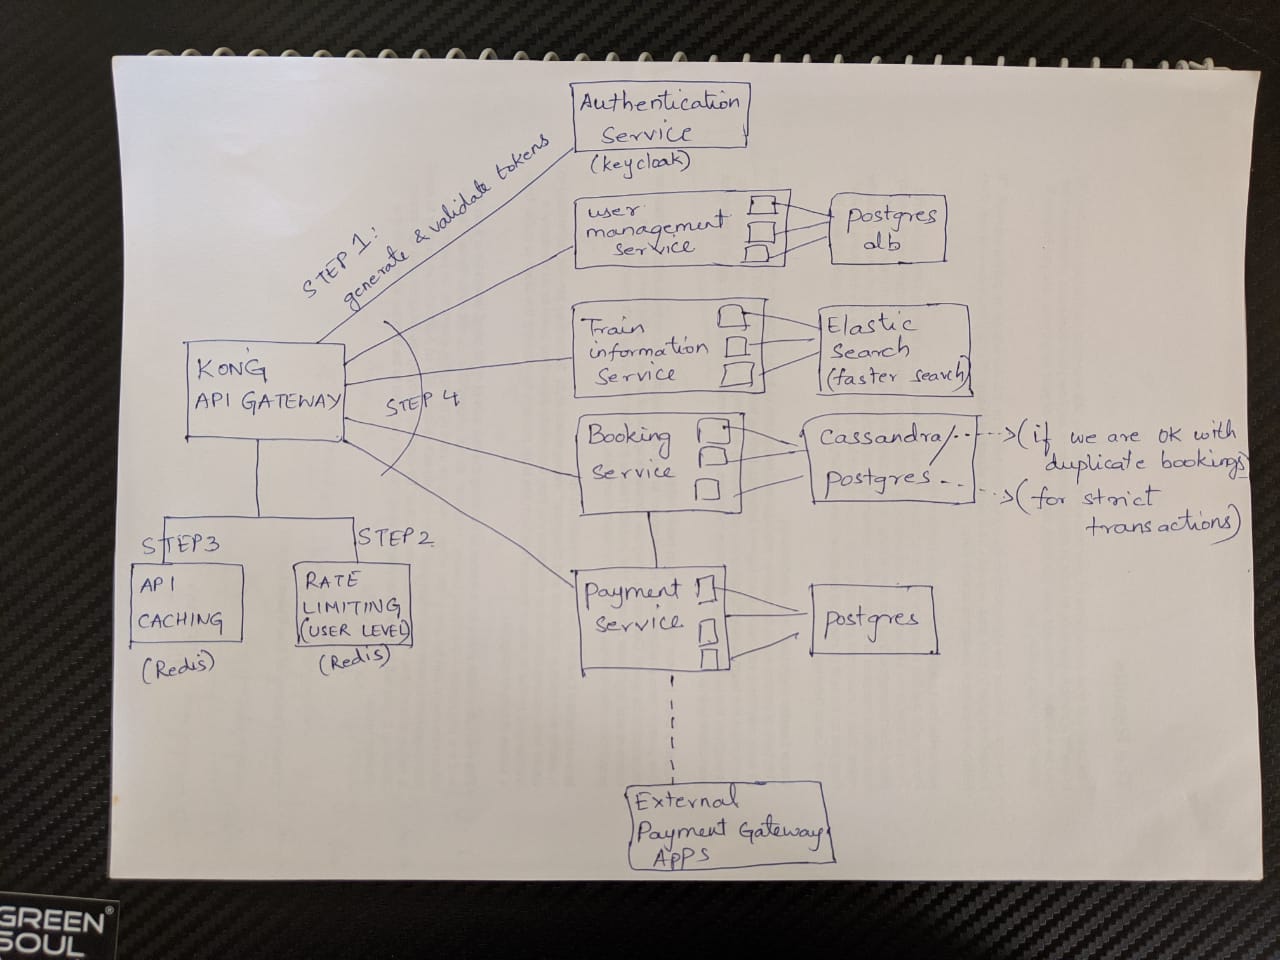 Authentication
Service
(keycloak)
STEP 1:
generate & validate tokens
user
management
service
postgres
db
Train
information
Service
Elastic
Search
(faster search)
KONG
API GATEWAY
STEP 4
Booking
Service
Cassandra/..
postgres..
(if we are ok with
duplicate bookings)
(for strict
transactions)
STEP3
STEP2
API
CACHING
(Redis)
RATE
LIMITING
(USER LEVEL)
(Redis)
Payment
Service
postgres
External
Payment Gateway
APPS
GREEN
SOUL
®